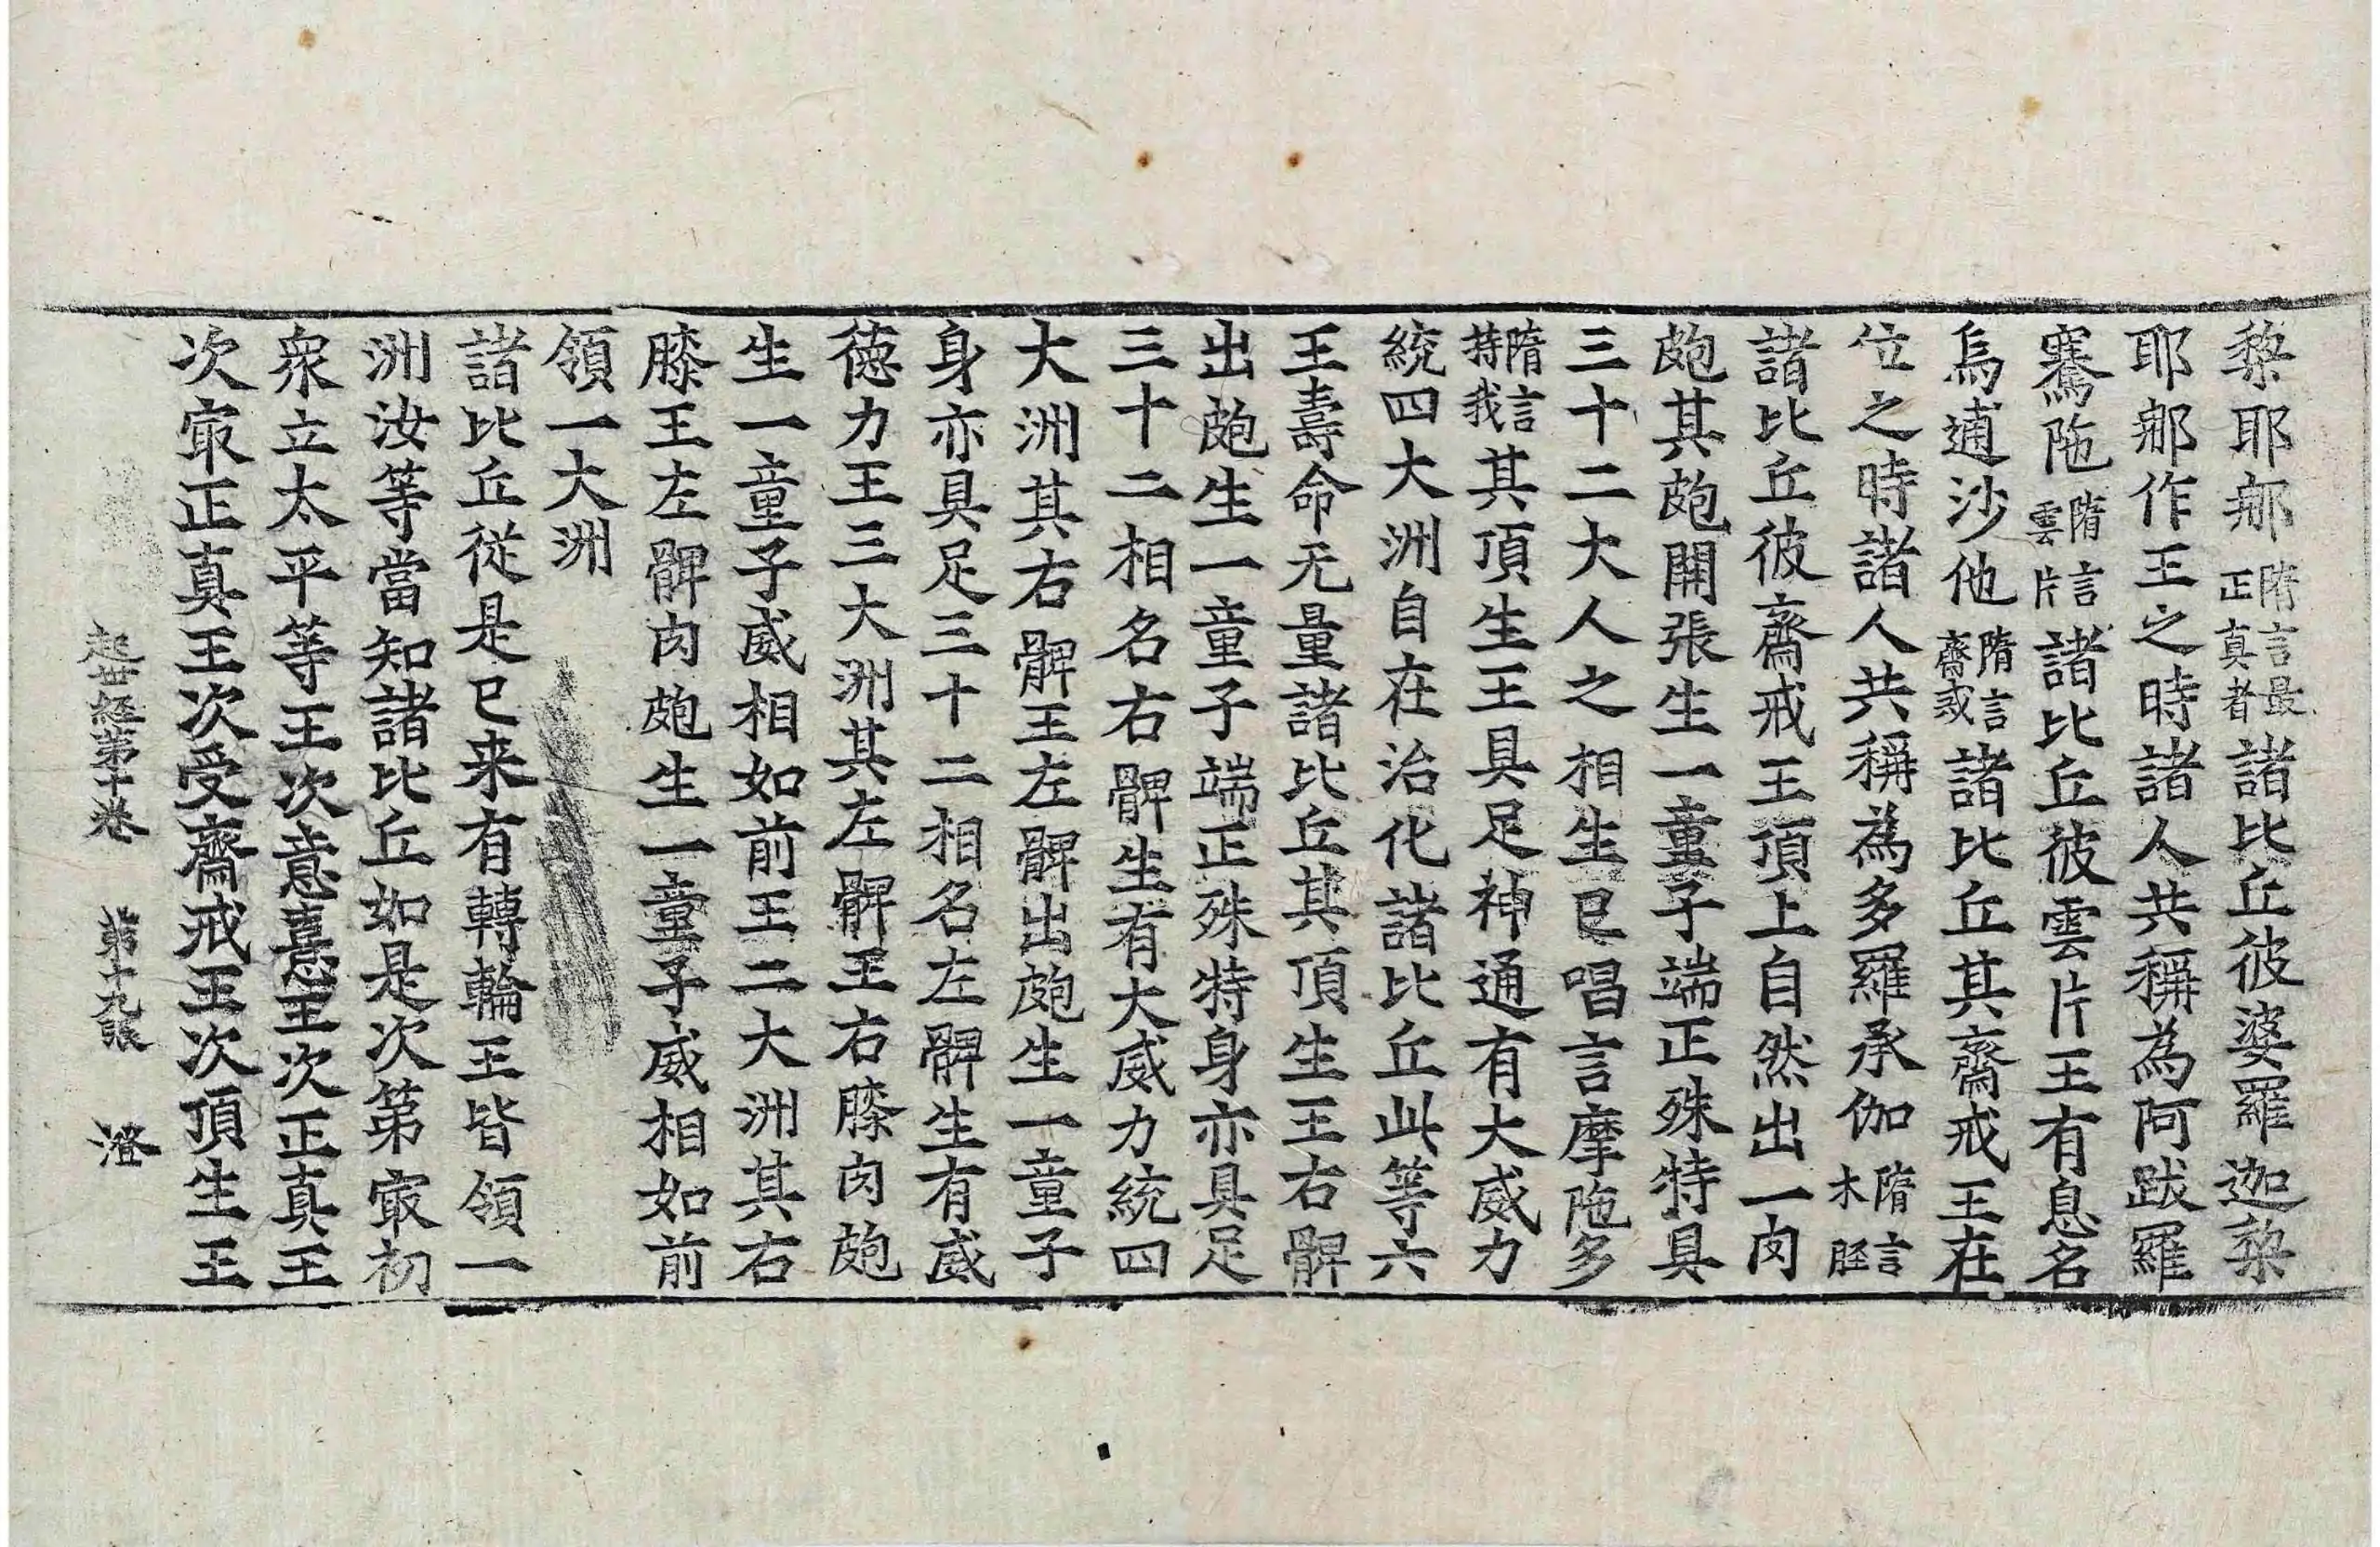 黎耶䣝隋言最正真者諸比丘彼婆羅迦黎
耶䣝作王之時諸人共稱為阿跋羅
騫陁隋言雲片諸比丘彼雲片王有息名
烏逋沙他隋言齋戒諸比丘其齋戒王在
位之時諸人共稱為多羅承伽隋言木脛
諸比丘彼齋戒王頂上自然出一肉
皰其皰開張生一童子端正殊特具
三十二大人之相生已唱言摩陁多
隋言持我其頂生王具足神通有大威力
統四大洲自在治化諸比丘此等六
王壽命无量諸比丘其頂生王右髀
出皰生一童子端正殊特身亦具足
三十二相名右髀生有大威力統四
大洲其右髀王左髀出皰生一童子
身亦具足三十二相名左髀生有威
德力王三大洲其左髀王右膝肉皰
生一童子威相如前王二大洲其右
膝王左髀肉皰生一童子威相如前
領一大洲
諸比丘從是已来有轉輪王皆領一
洲汝等當知諸比丘如是次第㝡初
衆立太平等王次意憙王次正真王
次㝡正真王次受齋戒王次頂生王
起世經第十卷　第十九張　澄